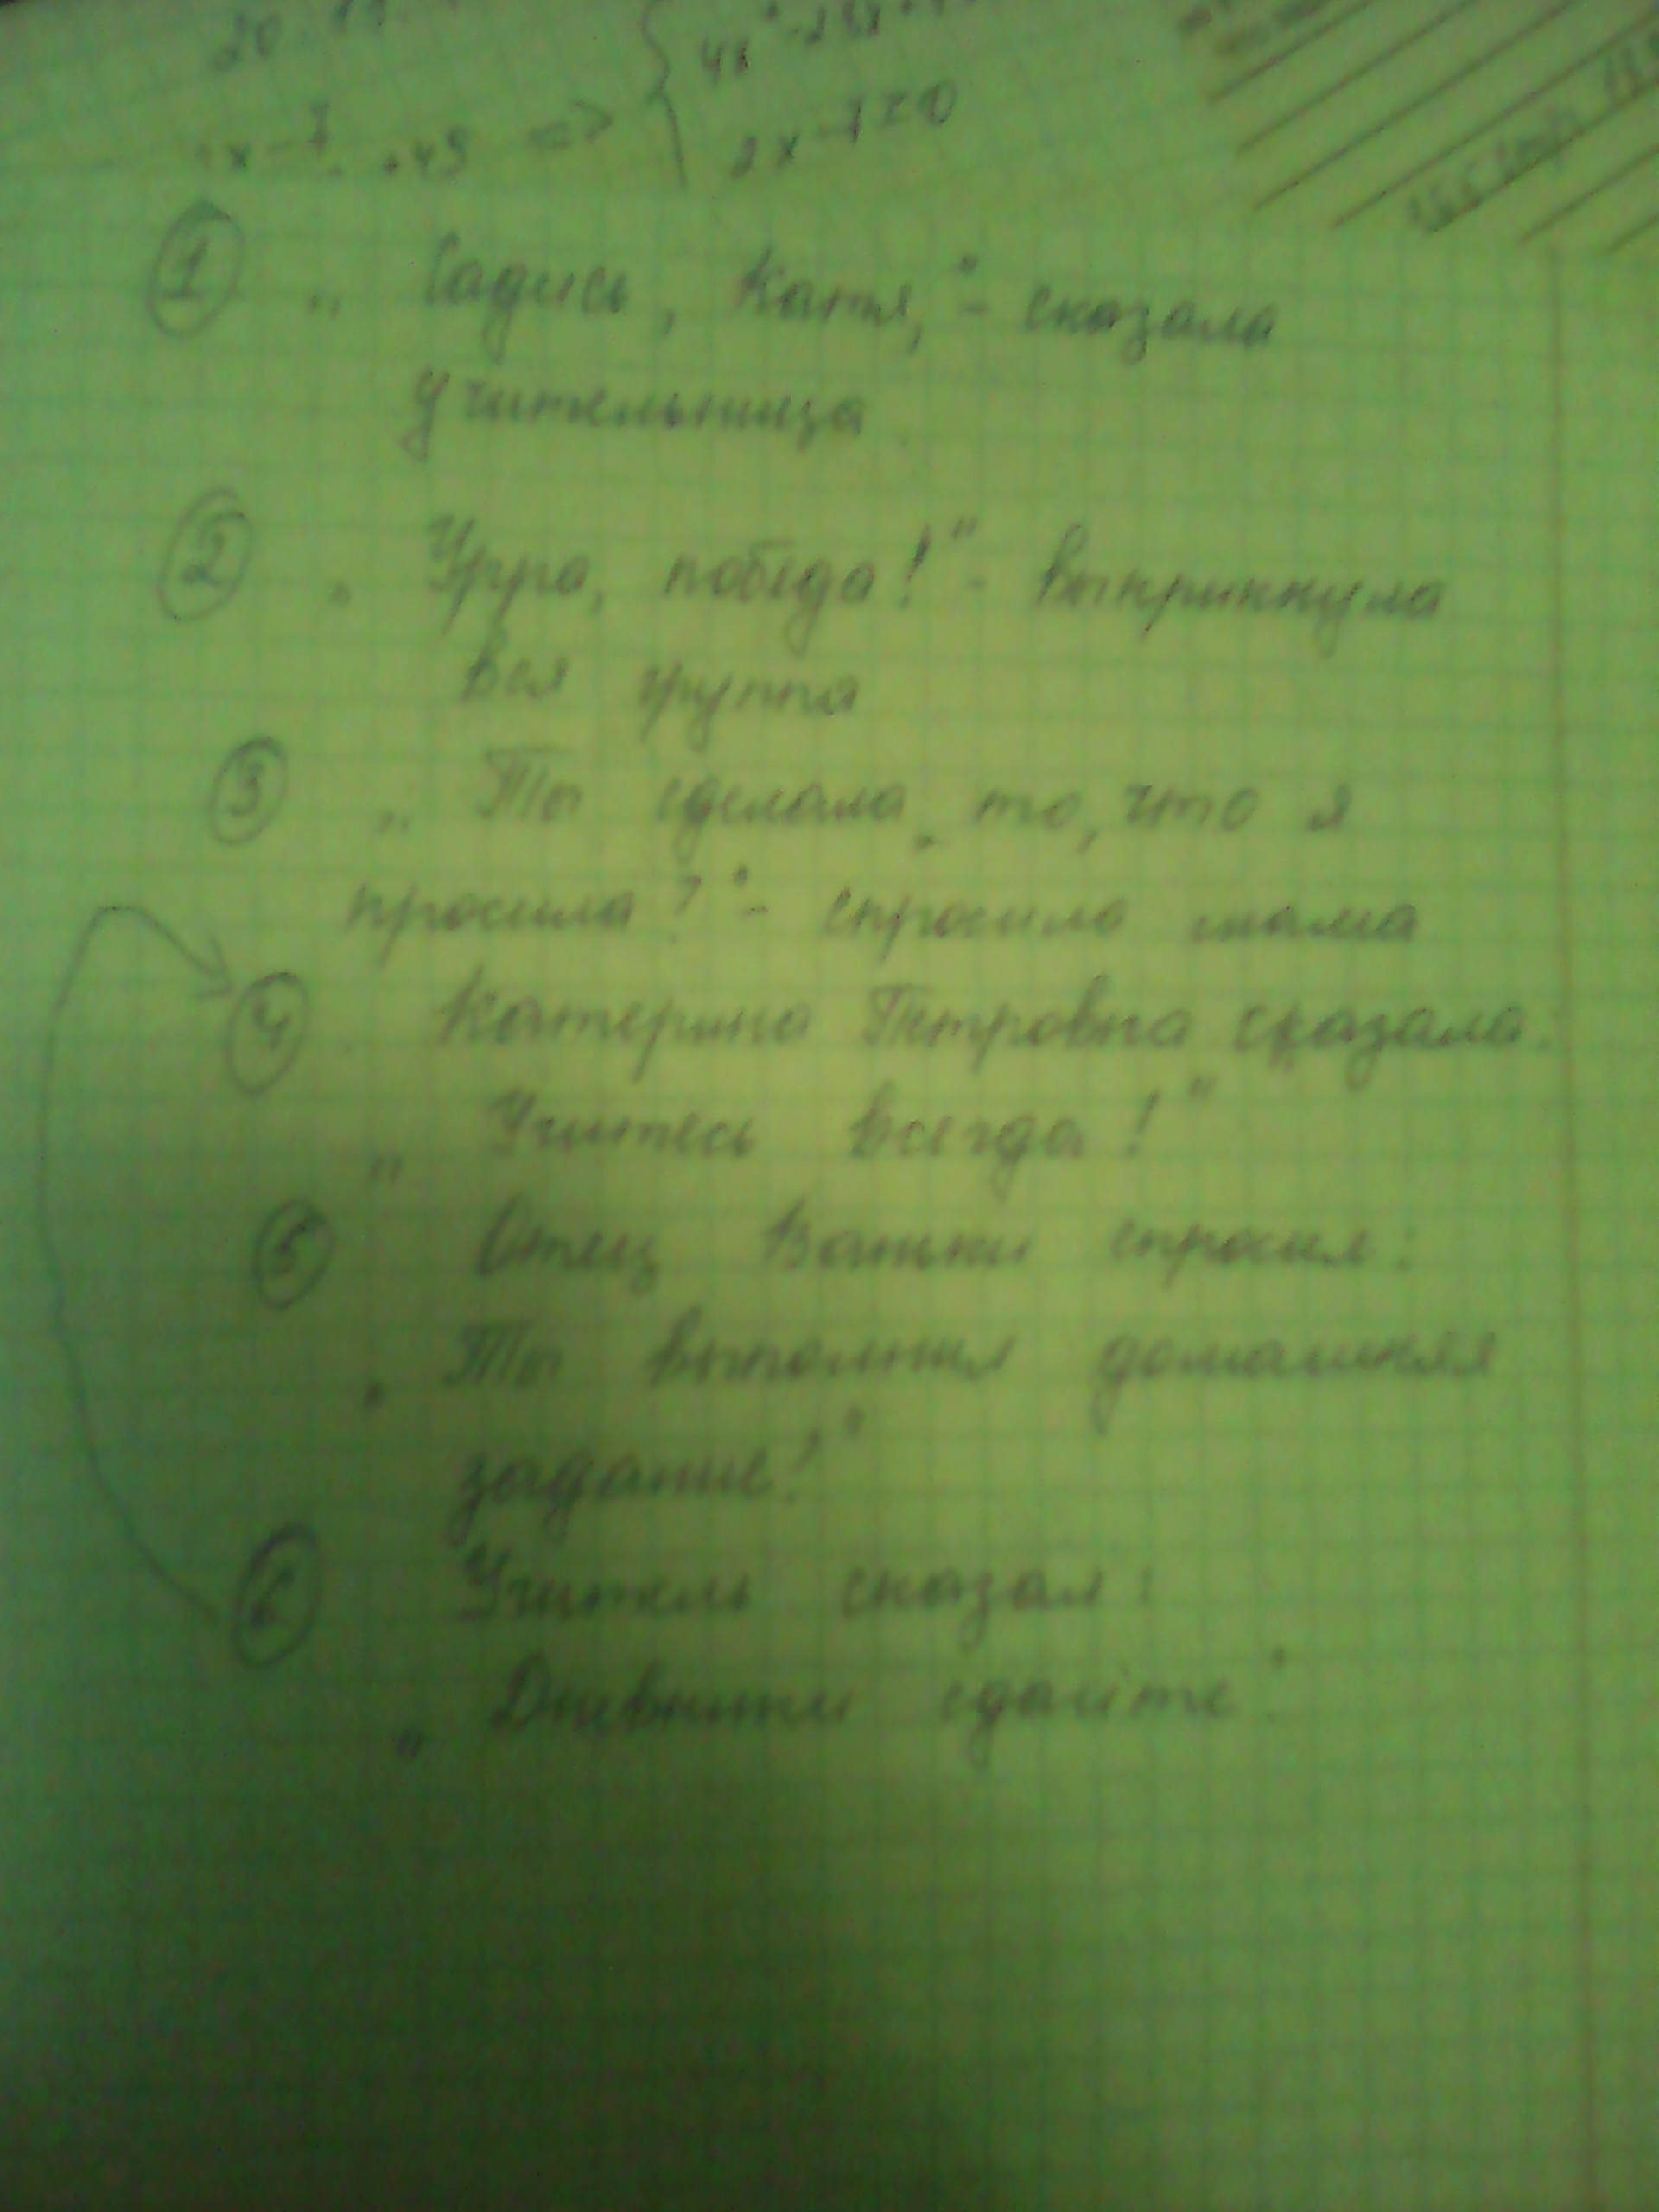 2x-1≥0
① „Садись, Катя,“ - сказала
учительница
② „Урра, победа!“ - выкрикнула
вся группа
③ „Ты сделала то, что я
просила?“ - спросила мама
④ Катерина Петровна сказала:
„Учитесь всегда!“
⑤ Отец Ваньки спросил:
„Ты выполнил домашняя
задание?“
⑥ Учитель сказал:
„Дневники сдайте“.